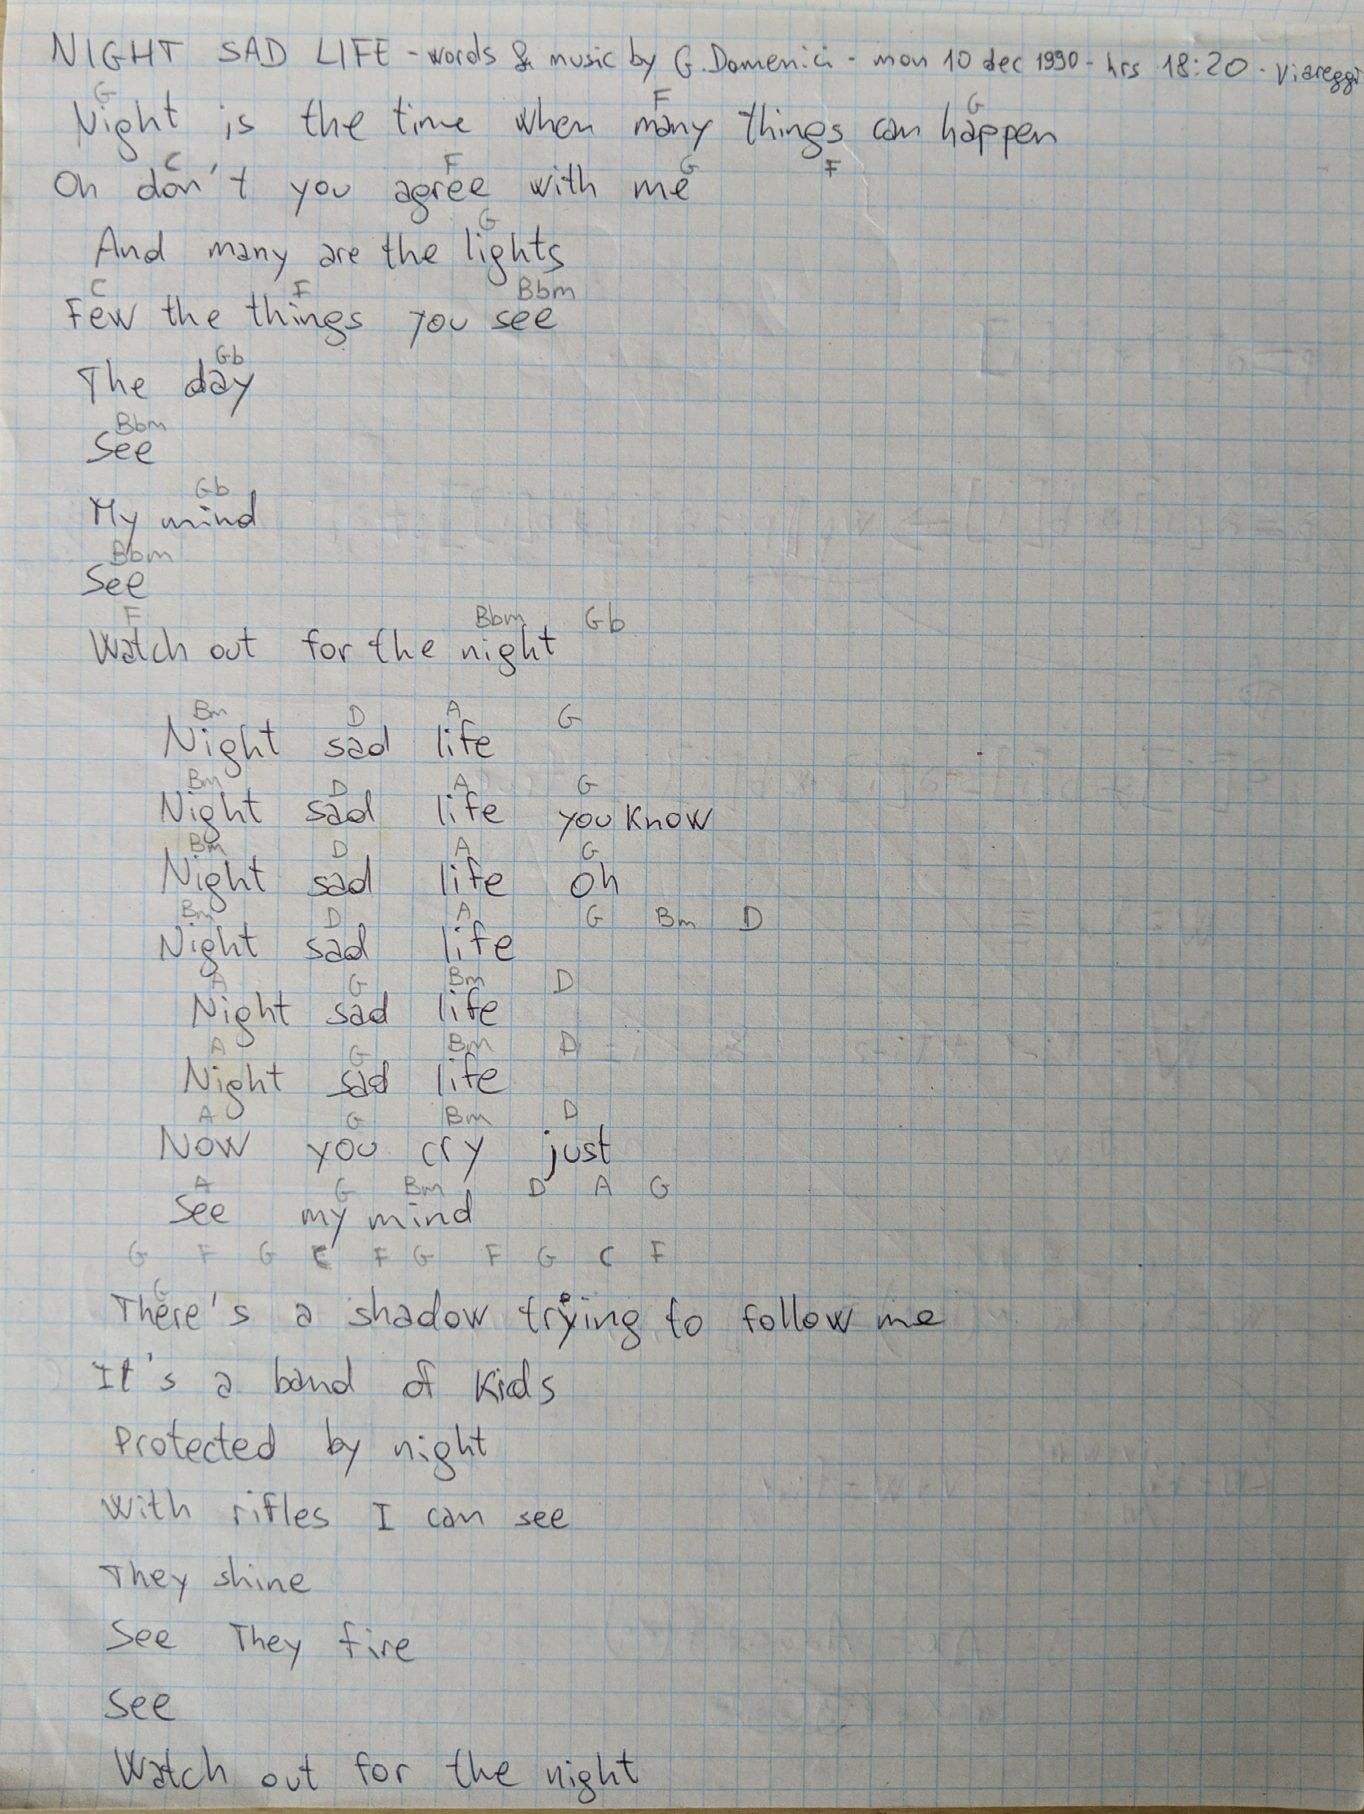 NIGHT SAD LIFE - words & music by G. Domenici - mon 10 dec 1990 - hrs 18:20 - Viareggi
G F G
Night is the time when many things can happen
C F G F
Oh don't you agree with me
G
And many are the lights
C F Bbm
Few the things you see
Gb
The day
Bbm
See
Gb
My mind
Bbm
See
F Bbm Gb
Watch out for the night
Bm D A G
Night sad life
Bm D A G
Night sad life you know
Bm D A G
Night sad life oh
Bm D A G Bm D
Night sad life
A G Bm D
Night sad life
A G Bm D
Night sad life
A G Bm D
Now you cry just
A G Bm D A G
See my mind
G F G C F G F G C F
G
There's a shadow trying to follow me
It's a band of kids
Protected by night
With rifles I can see
They shine
See They fire
See
Watch out for the night